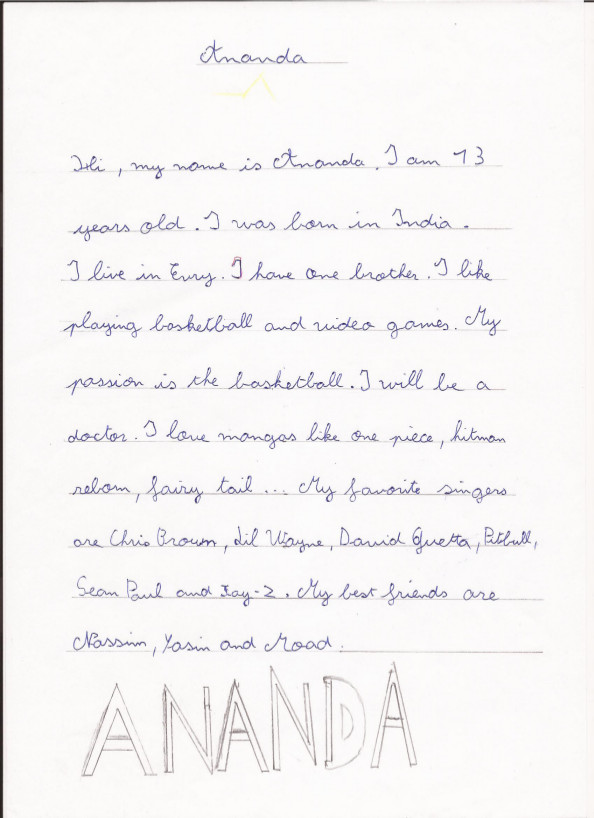 Ananda
Hi, my name is Ananda. I am 13
years old. I was born in India.
I live in Evry. I have one brother. I like
playing basketball and video games. My
passion is the basketball. I will be a
doctor. I love mangas like one piece, hitman
reborn, fairy tail ... My favorite singers
are Chris Brown, Lil Wayne, David Guetta, Pitbull,
Sean Paul and Jay-Z. My best friends are
Nassim, Yasin and Moad.
ANANDA